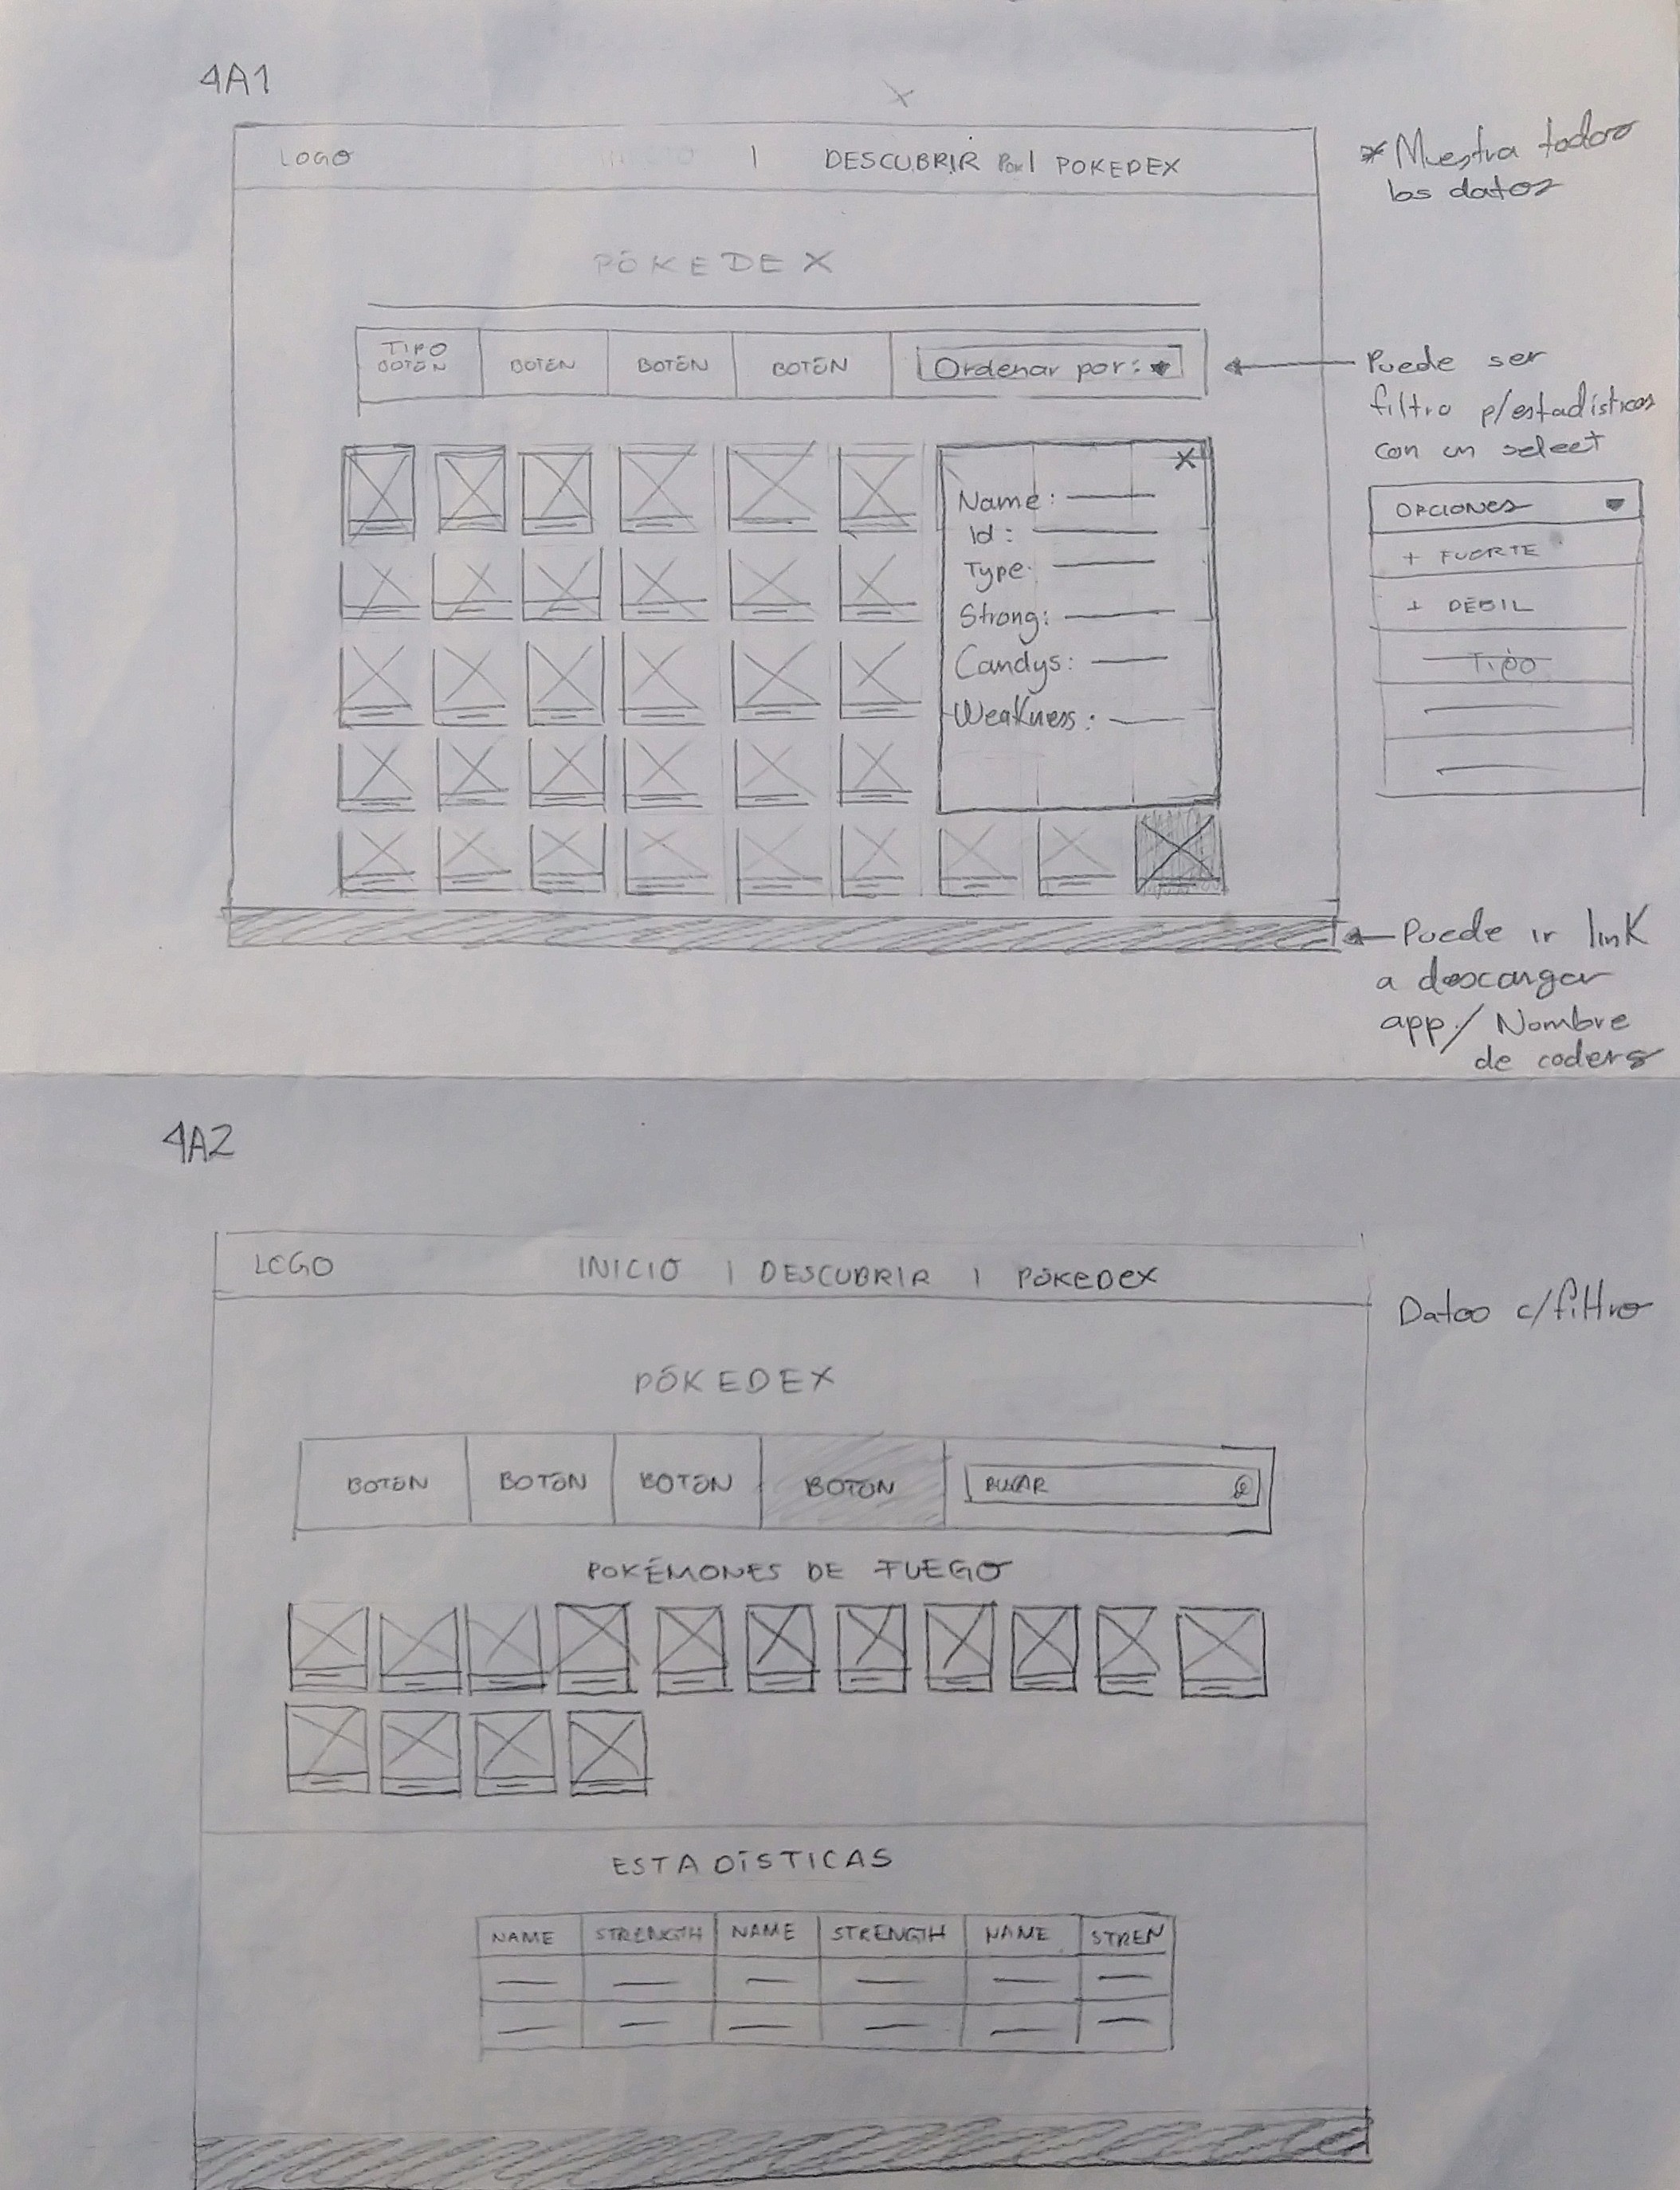 4A1
LOGO | DESCUBRIR POK| POKEDEX
* Muestra todos
los datos
POKEDEX
TIPO
BOTÓN BOTÓN BOTÓN BOTÓN Ordenar por:
Puede ser
filtro p/estadísticas
con un select
OPCIONES
+ FUERTE
+ DÉBIL
TIPO
X
Name:
Id:
Type:
Strong:
Candys:
Weakness:
Puede ir link
a descargar
app./ Nombre
de coders
4A2
LOGO INICIO | DESCUBRIR | POKEDEX
Datos c/filtro
POKEDEX
BOTÓN BOTÓN BOTÓN BOTÓN
POKÉMONES DE FUEGO
ESTADÍSTICAS
NAME STRENGTH NAME STRENGTH NAME STREN